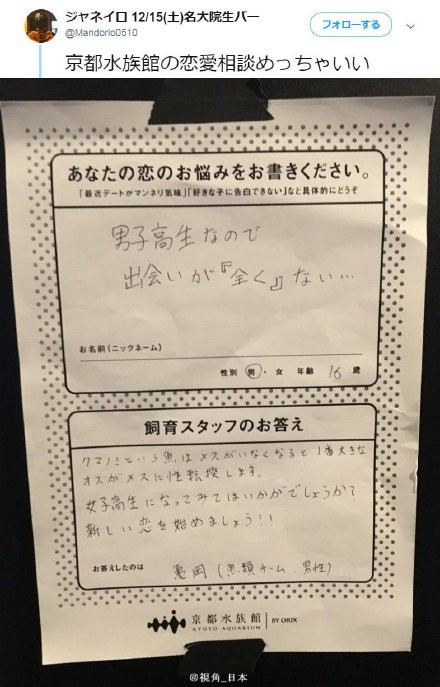 ジャネイロ 12/15(土)名大院生バー
@Mandorio0510
フォローする
京都水族館の恋愛相談めっちゃいい
あなたの恋のお悩みをお書きください。
「最近デートがマンネリ気味」「好きな子に告白できない」など具体的にどうぞ
男子高生なので
出会いが『全く』ない…
お名前(ニックネーム)
性別 男・女 年齢 16 歳
飼育スタッフのお答え
クマノミという魚はメスがいなくなると1番大きな
オスがメスに性転換します。
女子高生になってみてはいかがでしょうか?
新しい恋を始めましょう!!
お答えしたのは 亀岡(魚類チーム 男性)
京都水族館 BY ORIX
KYOTO AQUARIUM
@視角_日本